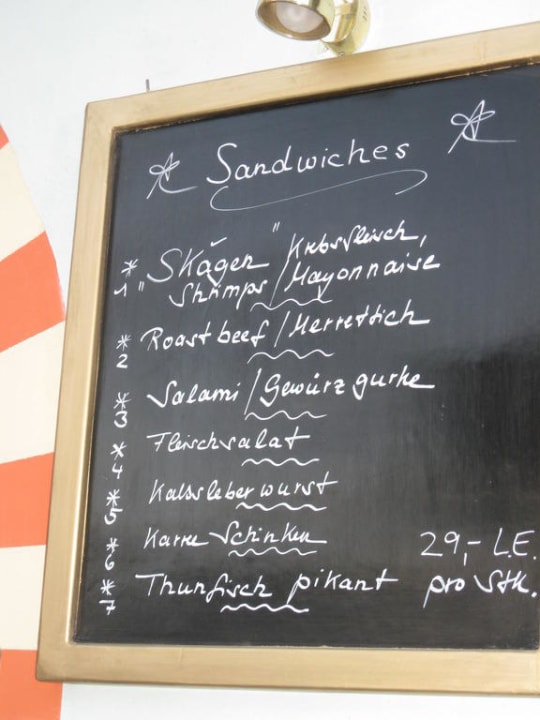 Sandwiches
* 1 "Skågen" Krebsfleisch,
Shrimps/Mayonnaise
* 2 Roastbeef/Merrettich
* 3 Salami/Gewürzgurke
* 4 Fleischsalat
* 5 Kalbsleberwurst
* 6 Karree Schinken
* 7 Thunfisch pikant
29,- L.E.
pro Stk.